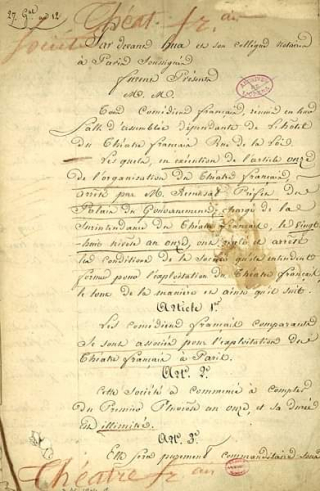 27. G.al an 12
Théat. fr. an
Société
Par devant Hua et son collègue notaires
à Paris Soussignés
furent Présens
M. M.
Tous Comédiens français, réunis en leur
Salle d'assemblée dépendante de l'hôtel
du Théatre français Rue de la Loi.
Lesquels, en exécution de l'article onze
de l'organisation du Théatre français,
arrêté par M. Remusat, Préfet du
Palais du Gouvernement chargé de la
Surintendance du Théatre français, le Vingt
huit nivôse an onze, ont et arrêté
les conditions de la Société qu'ils entendent
former pour l'exploitation du Théatre français
le tout de la manière et ainsi qu'il suit.
Article 1.er
Les Comédiens français comparants
Se sont associés pour l'exploitation du
Théatre français à Paris.
Art. 2.
Cette Société a commencé à compter
du Premier Pluviôse an onze, et sa durée
est illimitée.
Art. 3.
Elle sera purement commanditaire
Théatre fr. an